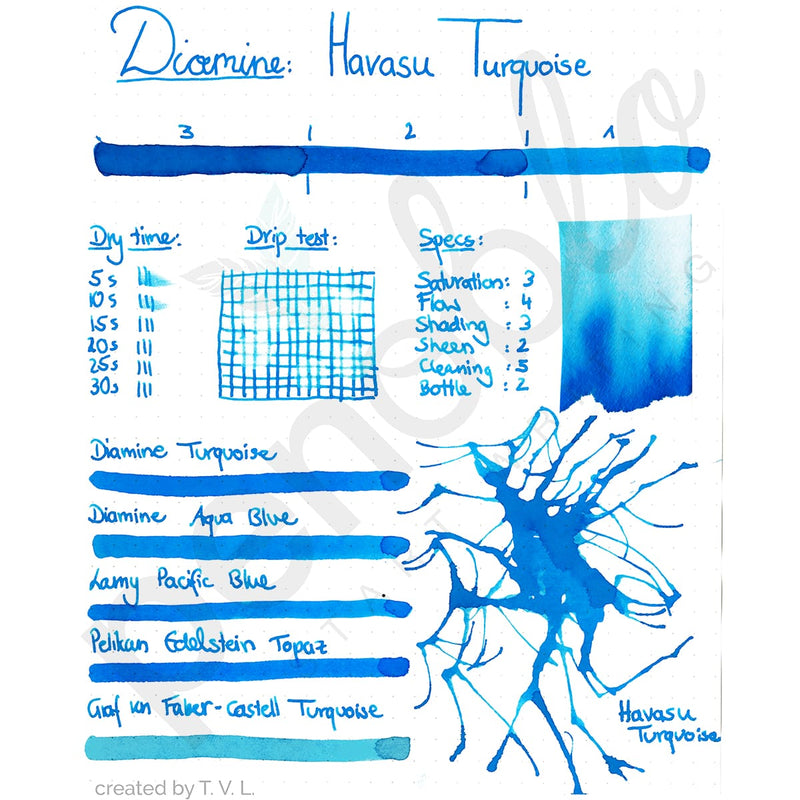 Diamine: Havasu Turquoise
3 2 1
Dry time:
5s
10s
15s
20s
25s
30s
Drip test:
Specs:
Saturation: 3
Flow : 4
Shading : 3
Sheen : 2
Cleaning : 5
Bottle : 2
Diamine Turquoise
Diamine Aqua Blue
Lamy Pacific Blue
Pelikan Edelstein Topaz
Graf von Faber-Castell Turquoise
Havasu
Turquoise
penoblo
created by T. V. L.